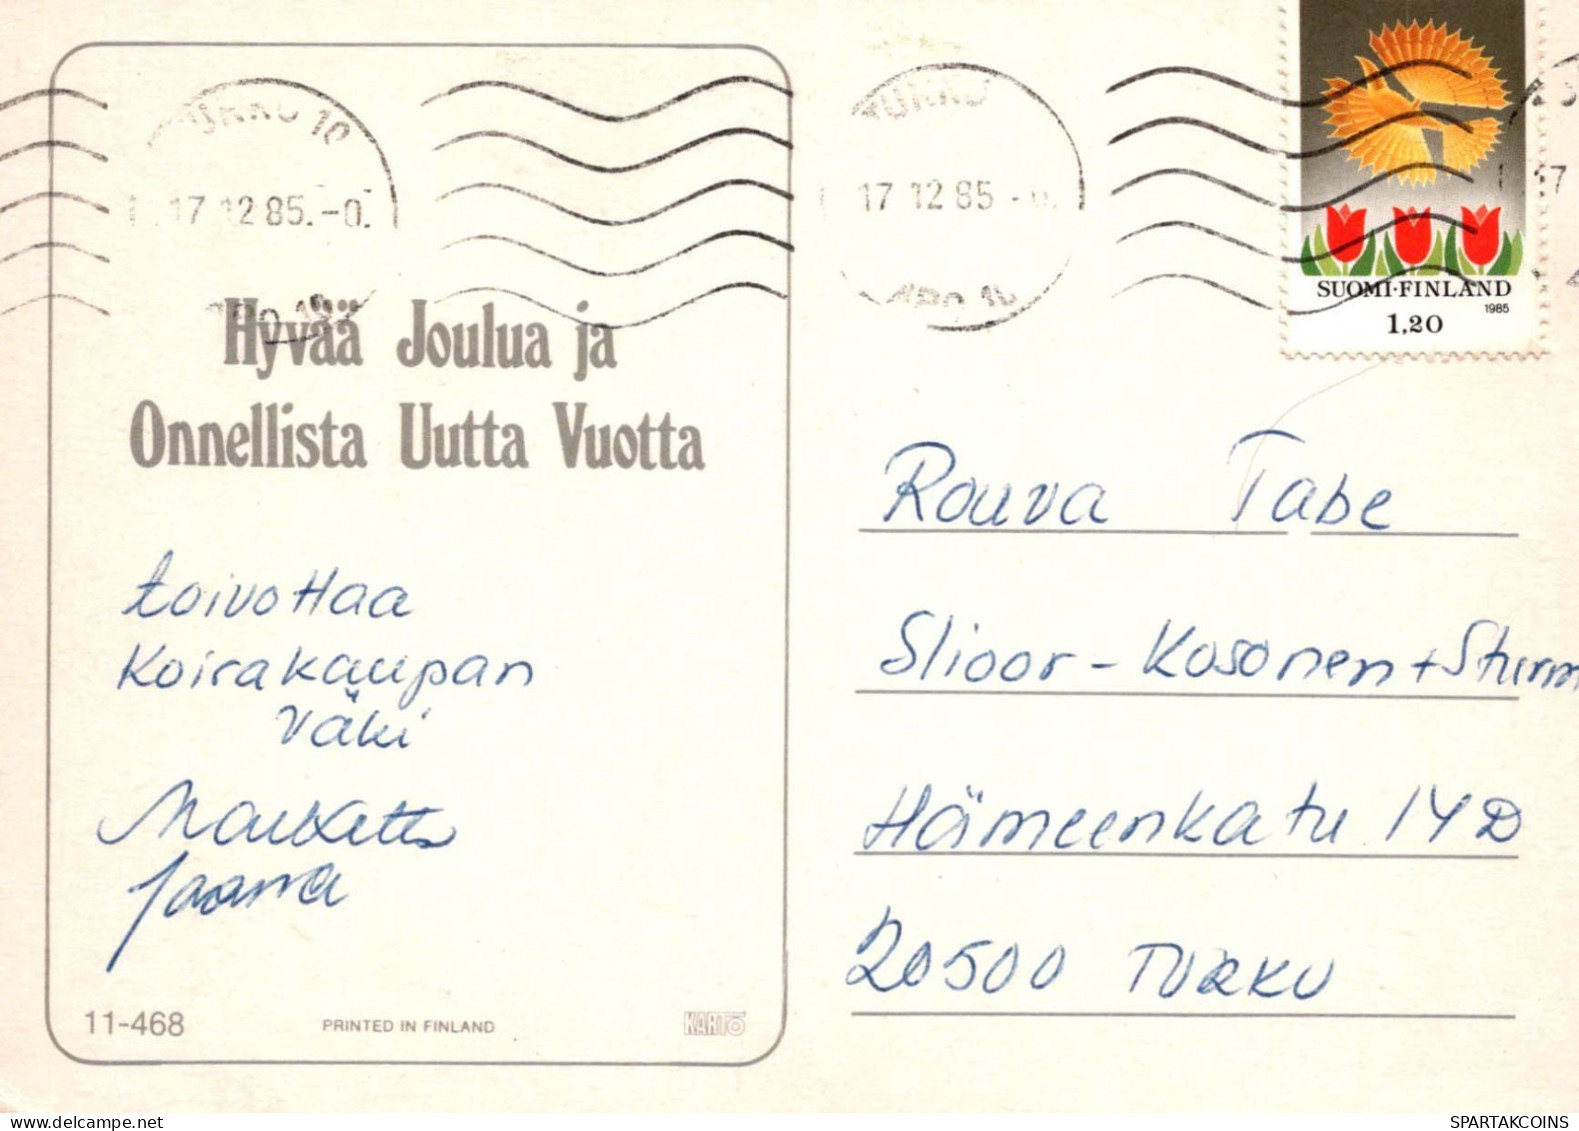 TURKU 10
17 12 85.-0.
TURKU
17 12 85 -0.
17
SUOMI·FINLAND
1985
1,20
Hyvää Joulua ja
Onnellista Uutta Vuotta
toivottaa
Koirakaupan
väki
Marketta
Jaana
Rouva Tabe
Slioor-Kosonen+Sturm
Hämeenkatu 14 D
20500 TURKU
11-468
PRINTED IN FINLAND
KARTO
delcampe.net
SPARTAKCOINS